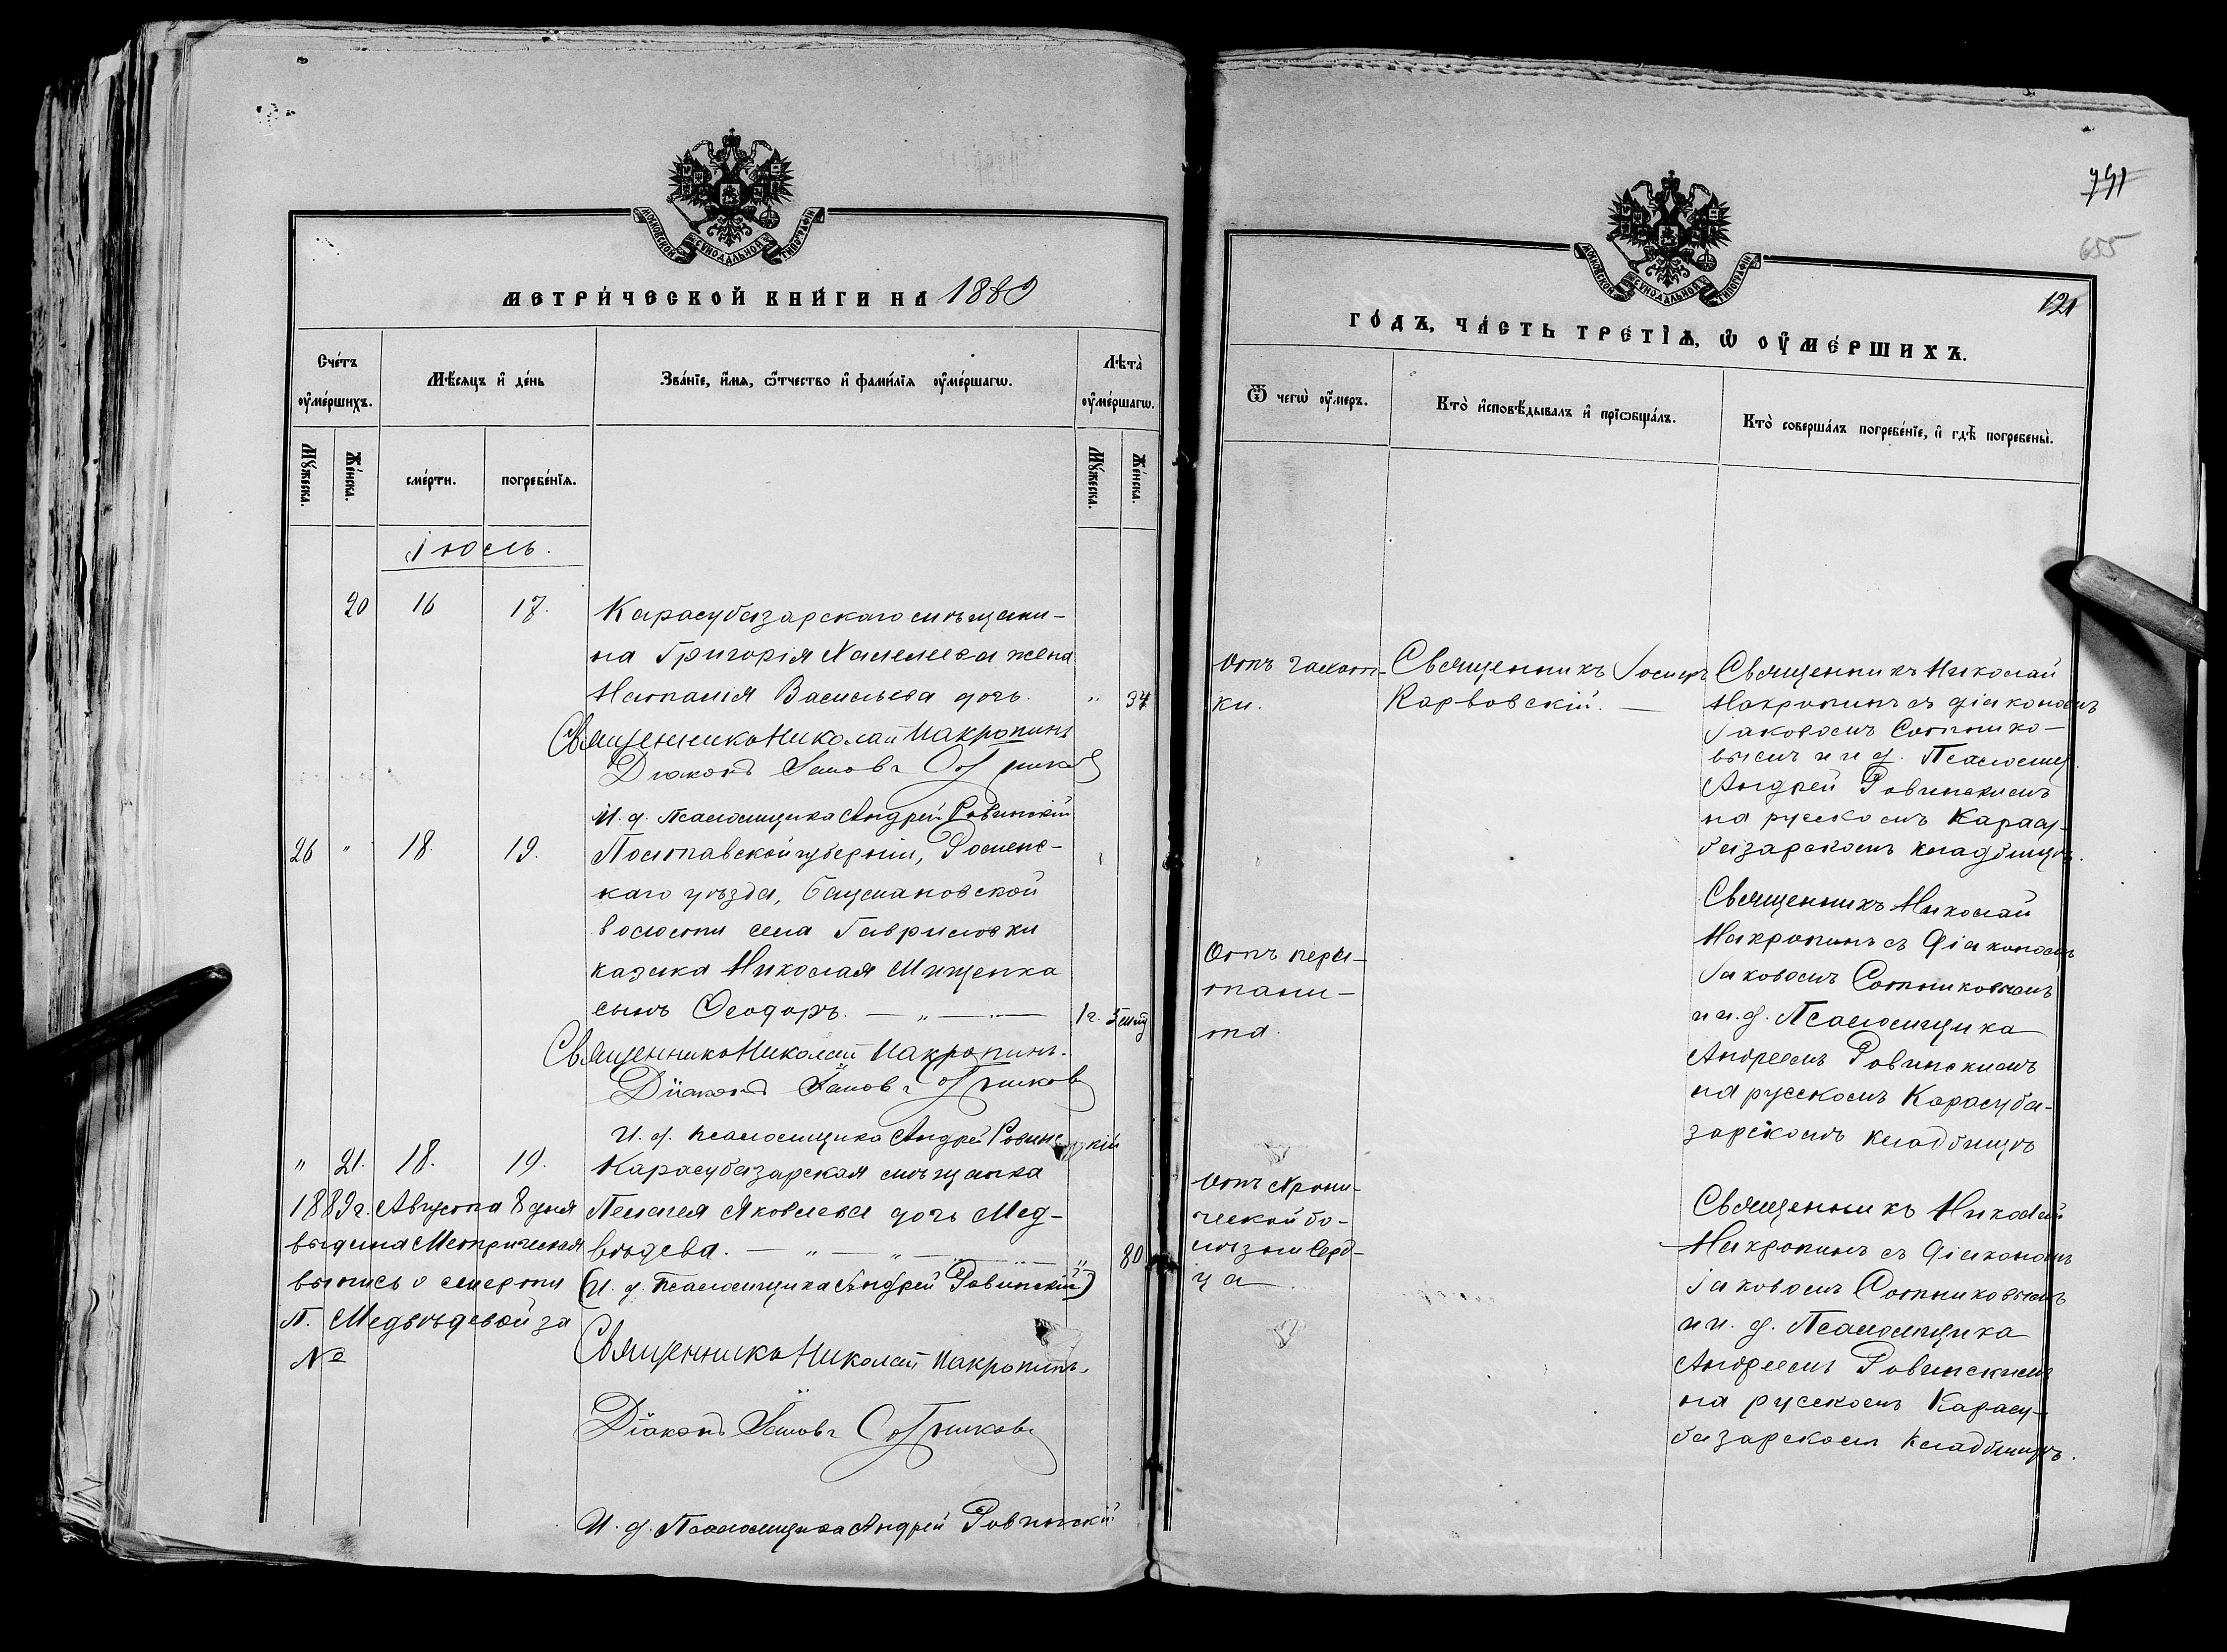 МОСКОВСКОЙ СѴНОДАЛЬНОЙ ТИПОГРАФІИ
МЕТРИ́ЧЕСКОЙ КНИ́ГИ НА 1889
Сче́тъ ᲂу҆ме́ршихъ.
Мѣ́сяцъ и҆ де́нь
Зва́нїе, и҆́мѧ, ѻ҆́тчество и҆ фами́лїѧ ᲂу҆ме́ршагѡ.
Лѣта̀ ᲂу҆ме́ршагѡ.
Мꙋ́жеска.
Же́нска.
сме́рти.
погребе́нїѧ.
Мꙋ́жеска.
Же́нска.
Іюль.
20 16 17.
Карасубазарскаго мѣщани-
на Григорія жена
Наталія Васильева дочь. " 34
Священникъ Николай Макропинъ
Діаконъ Іаковъ Сотниковъ
И. д. Псаломщика Андрей Ровинскій
26 " 18. 19.
Полтавской губерніи, Роменс-
каго уѣзда, Бацмановской
волости села Гавриловки
казака Николая Мищенка
сынъ Ѳеодоръ. — " — " — 1 г. 5 мѣ
Священникъ Николай Макропинъ.
Діаконъ Іаковъ Сотниковъ
И. д. псаломщика Андрей Ровинскій
" 21. 18. 19.
Карасубазарская мѣщанка
Пелагея Яковлева дочь Мед-
вѣдева. — " — " — " 80
(И. д. Псаломщика Андрей Ровинскій)
1889 г. Августа 8 дня
выдана Метрическая
выпись о смерти
П. Медвѣдевой за
№
Священникъ Николай Макропинъ.
Діаконъ Іаковъ Сотниковъ
И. д. Псаломщика Андрей Ровинскій
655
121
МОСКОВСКОЙ СѴНОДАЛЬНОЙ ТИПОГРАФІИ
ГО́ДЪ, ЧА́СТЬ ТРЕ́ТІѦ, Ѡ҆ ОУ҆МЕ́РШИХЪ.
Ѿ чегѡ̀ ᲂу҆́меръ.
Кто̀ и҆сповѣ́дывалъ и҆ прїѡбща́лъ.
Кто̀ соверша́лъ погребе́нїе, и҆ гдѣ̀ погребены̀.
Отъ чахот-
ки.
Священникъ Іосифъ
Карвовскій. —
Священникъ Николай
Макропинъ съ діакономъ
Іаковомъ Сотнико-
вымъ и и д. Псаломщ.
Андрей Ровинскимъ
на русскомъ Карасу-
базарскомъ кладбищѣ.
Отъ пери-
тони-
та.
Священникъ Николай
Макропинъ съ Діакономъ
Іаковомъ Сотниковымъ
и и. д. Псаломщика
Андреемъ Ровинскимъ
на русскомъ Карасуба-
зарскомъ кладбищѣ
Отъ хрони-
ческой бо-
лѣзни серд-
ца
Священникъ Николай
Макропинъ съ Діакономъ
Іаковомъ Сотниковымъ
и и. д. Псаломщика
Андреемъ Ровинскимъ
на русскомъ Карасу-
базарскомъ кладбищѣ.